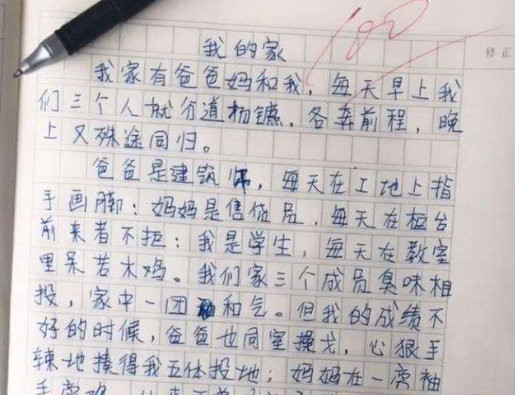 100
修正
我的家
我家有爸爸妈和我，每天早上我
们三个人就分道扬镳，各奔前程，晚
上又殊途同归。
爸爸是建筑师，每天在工地上指
手画脚；妈妈是售货员，每天在柜台
前来者不拒；我是学生，每天在教室
里呆若木鸡。我们家三个成员臭味相
投，家中一团和气。但我的成绩不
好的时候，爸爸也同室操戈，心狠手
辣地揍得我五体投地；妈妈在一旁袖
手旁观